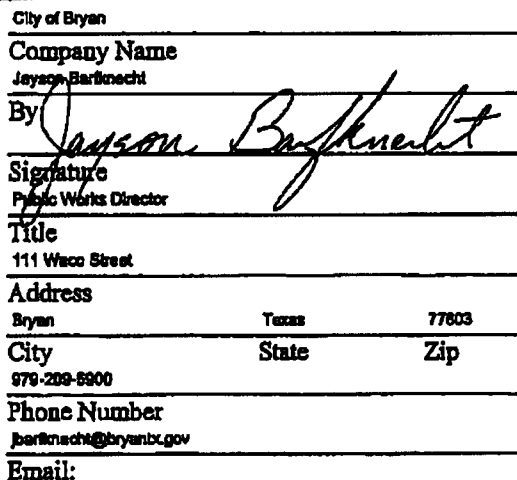 City of Bryan
Company Name
Jayson Barfknecht
By
Jayson Barfknecht
Signature
Public Works Director
Title
111 Waco Street
Address
Bryan Texas 77803
City State Zip
979-209-5900
Phone Number
jbarfknecht@bryantx.gov
Email: